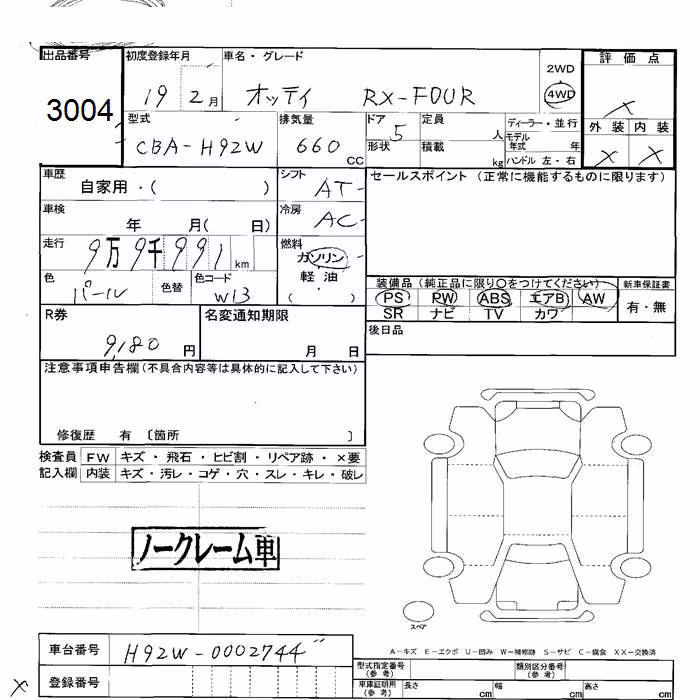 出品番号 初度登録年月 車名・グレード 評価点
3004 19 2月 オッティ RX-FOUR 2WD 4WD X
型式 排気量 ドア 定員 ディーラー・並行 外装 内装
CBA-H92W 660 CC 5 人 モデル年式 年 X X
形状 積載 kg ハンドル 左・右
車歴 シフト セールスポイント (正常に機能するものに限ります)
自家用・( ) AT-
車検 冷房
年 月( 日) AC-
走行 燃料
9万9千991km ガソリン
色 色替 色コード 軽油 装備品(純正品に限り○をつけてください) 新車保証書
パール W13 ( ・ ) PS PW ABS エアB AW 有・無
SR ナビ TV カワ
R券 名変通知期限 後日品
9,180円 月 日
注意事項申告欄(不具合内容等は具体的に記入して下さい)
修復歴 有 〔箇所 〕
検査員 FW キズ・飛石・ヒビ割・リペア跡・×要
記入欄 内装 キズ・汚レ・コゲ・穴・スレ・キレ・破レ
ノークレーム車
スペア
A-キズ E-エクボ U-凹み W-補修跡 S-サビ C-腐食 XX-交換済
車台番号 H92W-0002744 型式指定番号(参考) 類別区分番号(参考)
X 登録番号 車庫証明用(参考) 長さ cm 幅 cm 高さ cm